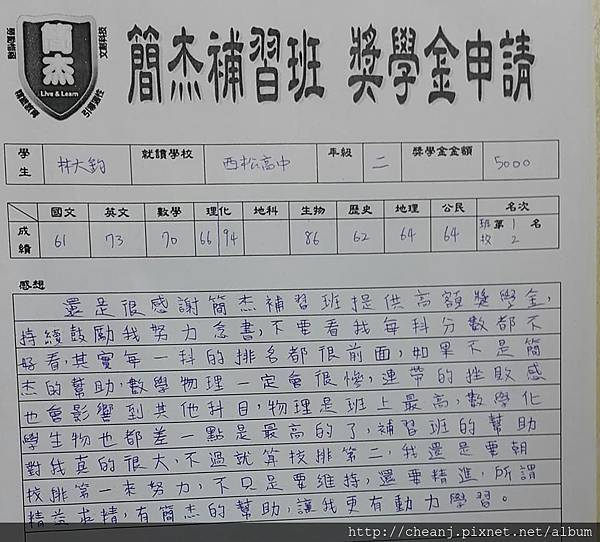 簡杰
Live & Learn
引導適性
簡杰補習班 獎學金申請
學生 林大鈞 就讀學校 西松高中 年級 二 獎學金金額 5000
國文 英文 數學 理化 地科 生物 歷史 地理 公民 名次
成績 61 73 70 66 94 86 62 64 64 班第1名 校2
感想
還是很感謝簡杰補習班提供高額獎學金,
持續鼓勵我努力念書,不要看我每科分數都不
好看,其實每一科的排名都很前面,如果不是簡
杰的幫助,數學物理一定會很慘,連帶的挫敗感
也會影響到其他科目,物理是班上最高,數學化
學生物也都差一點是最高的了,補習班的幫助
對我真的很大,不過就算校排第二,我還是要朝
校排第一來努力,不只是要維持,還要精進,所謂
精益求精,有簡杰的幫助,讓我更有動力學習。
http://cheanj.pixnet.net/album